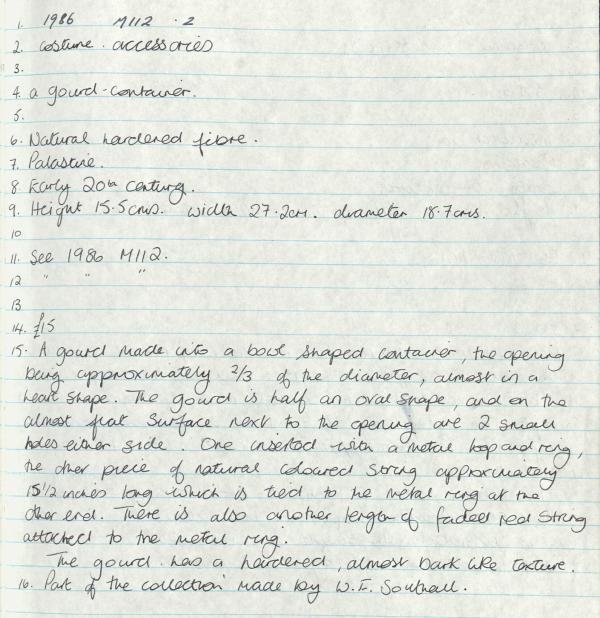 1. 1986 M112 . 2
2. costume . accessories
3.
4. a gourd-container.
5.
6. Natural hardened fibre.
7. Palastine.
8. Early 20th century.
9. Height 15.5cms. width 27.2cm. diameter 18.7cms.
10
11. See 1986 M112.
12 " " "
13
14. £15
15. A gourd made into a bowl shaped container, the opening
being approximately 2/3 of the diameter, almost in a
heart shape. The gourd is half an oval shape, and on the
almost flat surface next to the opening are 2 small
holes either side. One inserted with a metal loop and ring,
the other piece of natural coloured string approximately
15 1/2 inches long which is tied to the metal ring at the
other end. There is also another length of faded red string
attached to the metal ring.
The gourd has a hardened, almost bark like texture.
16. Part of the collection made by W.E. Southall.